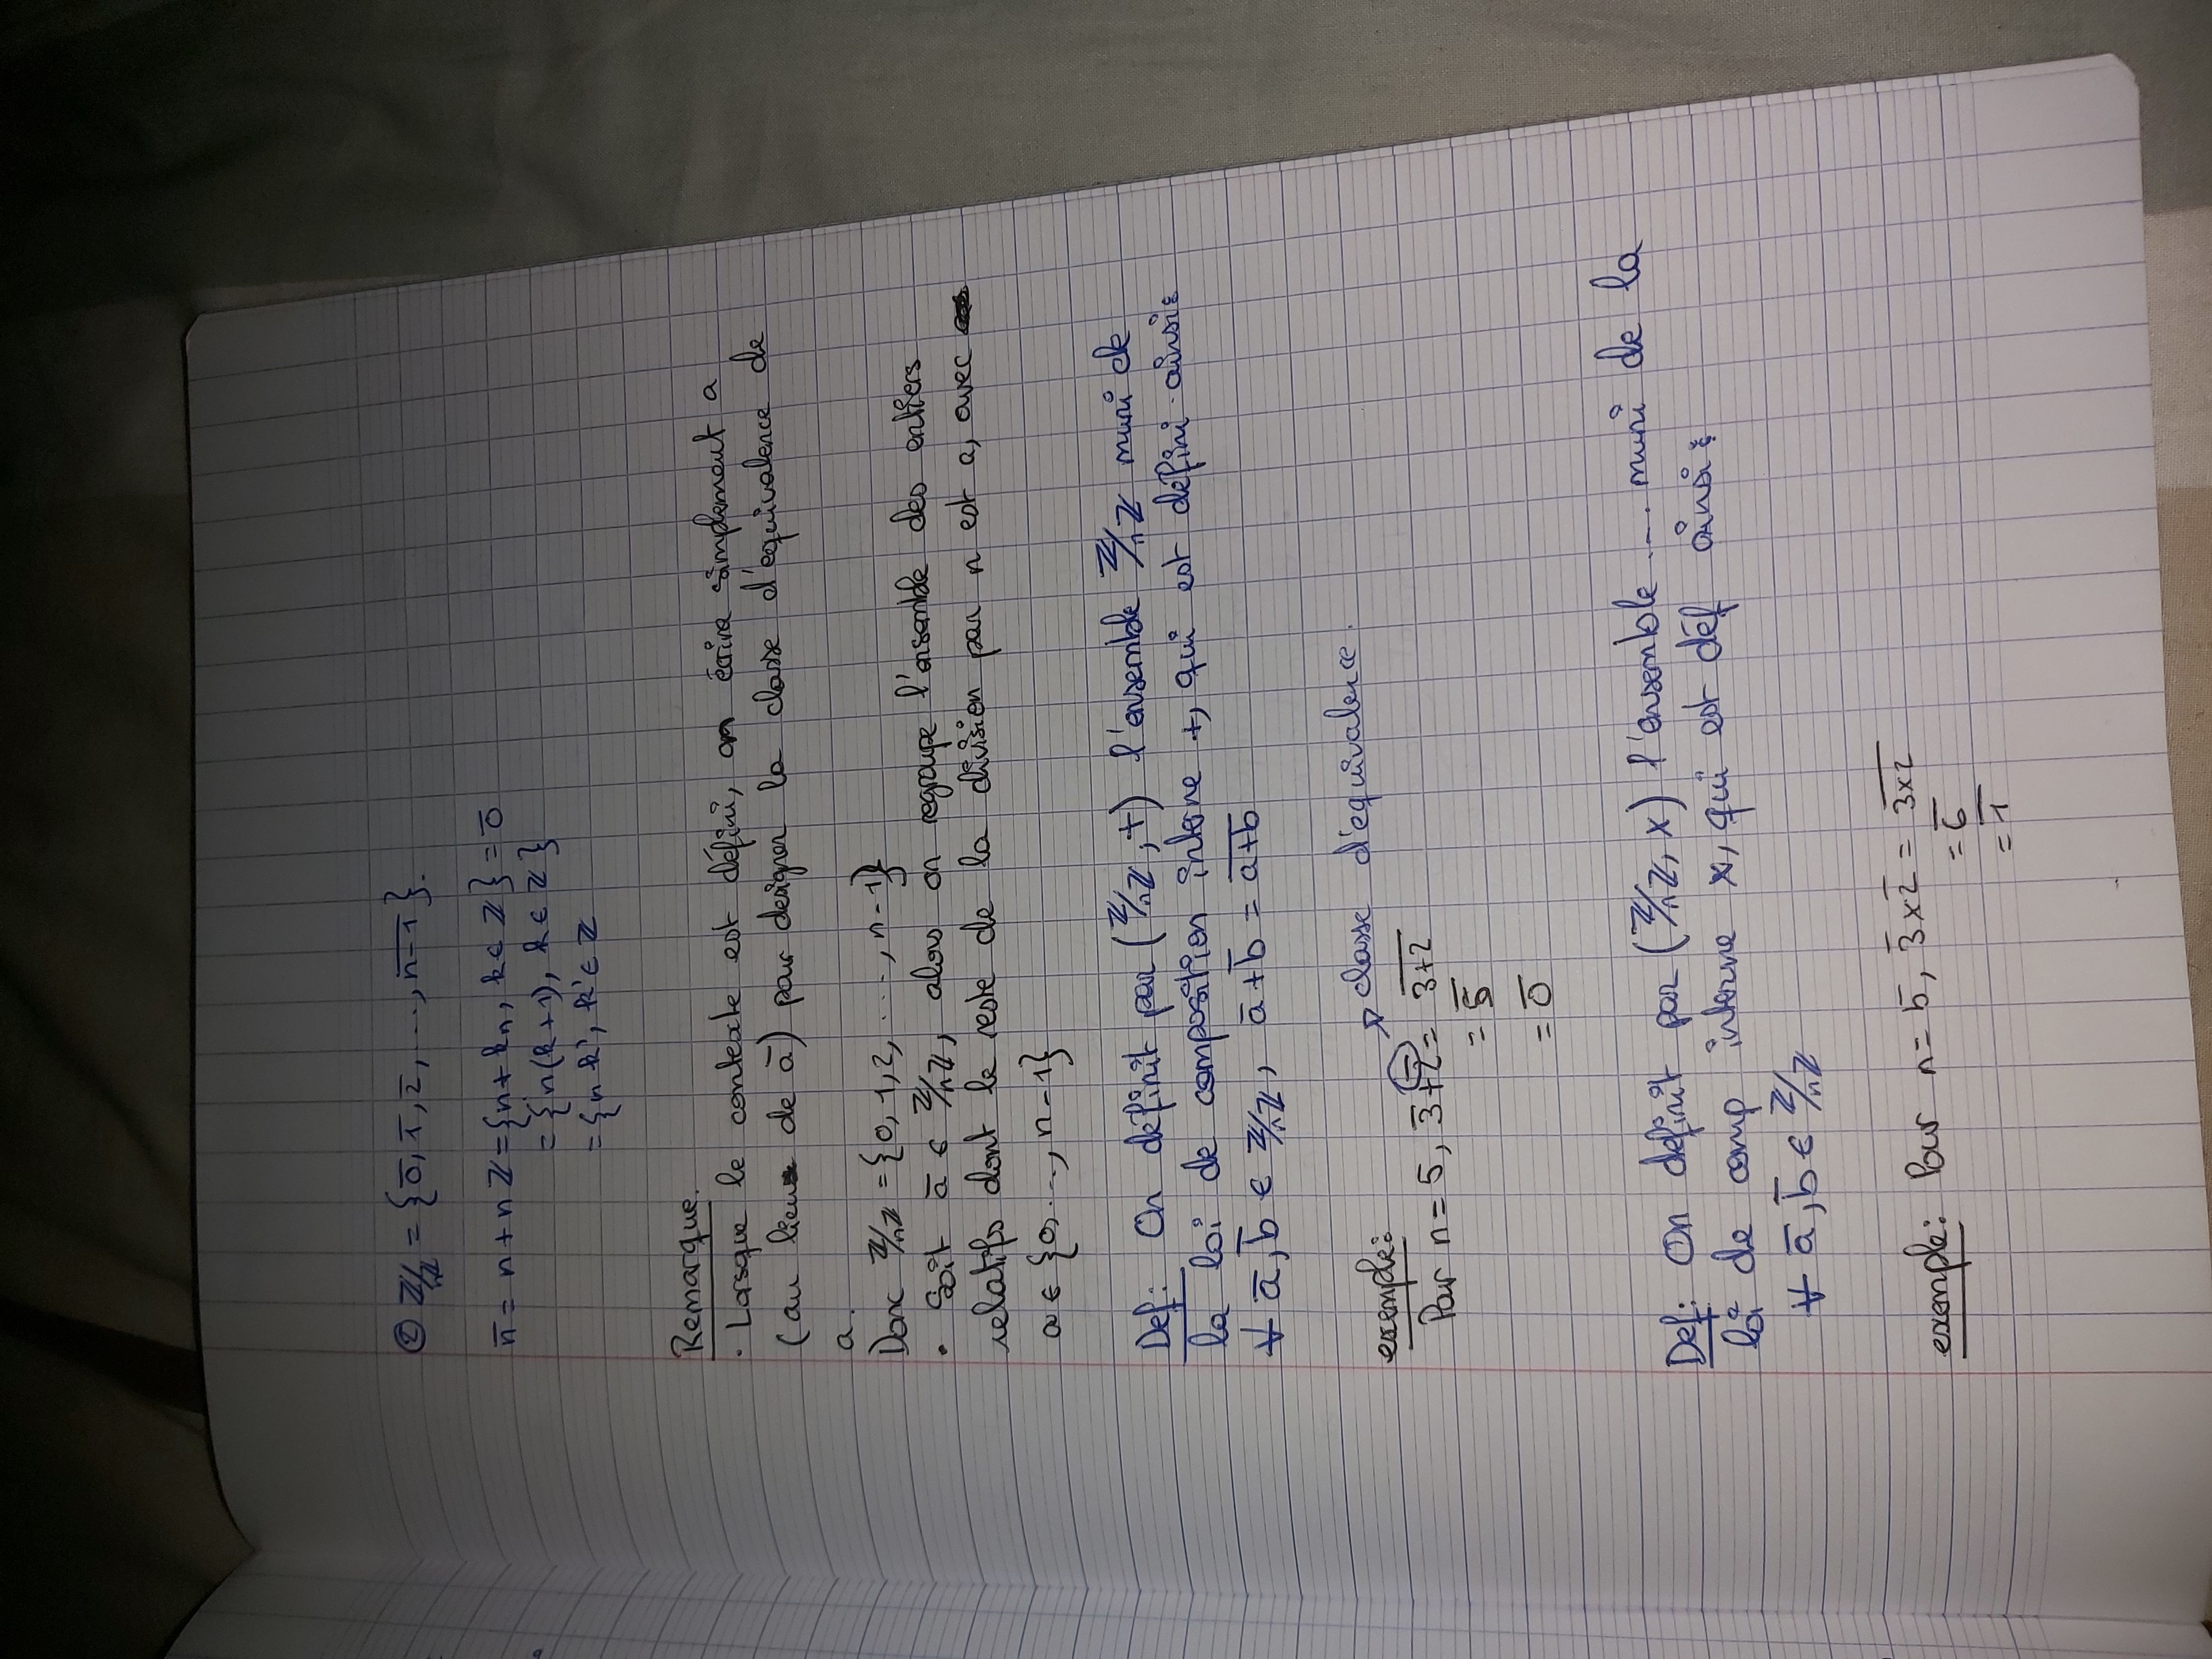 ② ℤ/nℤ = {0̅, 1̅, 2̅, ..., n-1̅}.
n̅ = n + nℤ = {n + kn, k ∈ ℤ} = 0̅
= {n(k+1), k ∈ ℤ}
= {n k', k' ∈ ℤ
Remarque.
• Lorsque le contexte est défini, on écrira simplement a
(au lieu de a̅) pour designer la classe d'équivalence de
a.
Donc ℤ/nℤ = {0, 1, 2, ...., n-1}
• Soit a̅ ∈ ℤ/nℤ, alors on regroupe l'ensemble des entiers
relatifs dont le reste de la division par n est a, avec
a ∈ {0, ..., n-1}
Def: On définit par (ℤ/nℤ, +) l'ensemble ℤ/nℤ muni de
la loi de composition interne +, qui est défini ainsi:
∀ a̅, b̅ ∈ ℤ/nℤ, a̅ + b̅ = a̅+̅b̅
classe d'équivalence.
exemple:
Pour n = 5, 3̅ + 2̅ = 3̅+̅2̅
= 5̅
= 0̅
Def: On définit par (ℤ/nℤ, x) l'ensemble ... muni de la
loi de comp interne x, qui est déf ainsi:
∀ a̅, b̅ ∈ ℤ/nℤ
exemple: Pour n = 5, 3̅ x 2̅ = 3̅x̅2̅
= 6̅
= 1̅